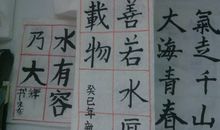 氣走千山
大海青春
善若水厚
載物
癸巳年
水有容
乃大